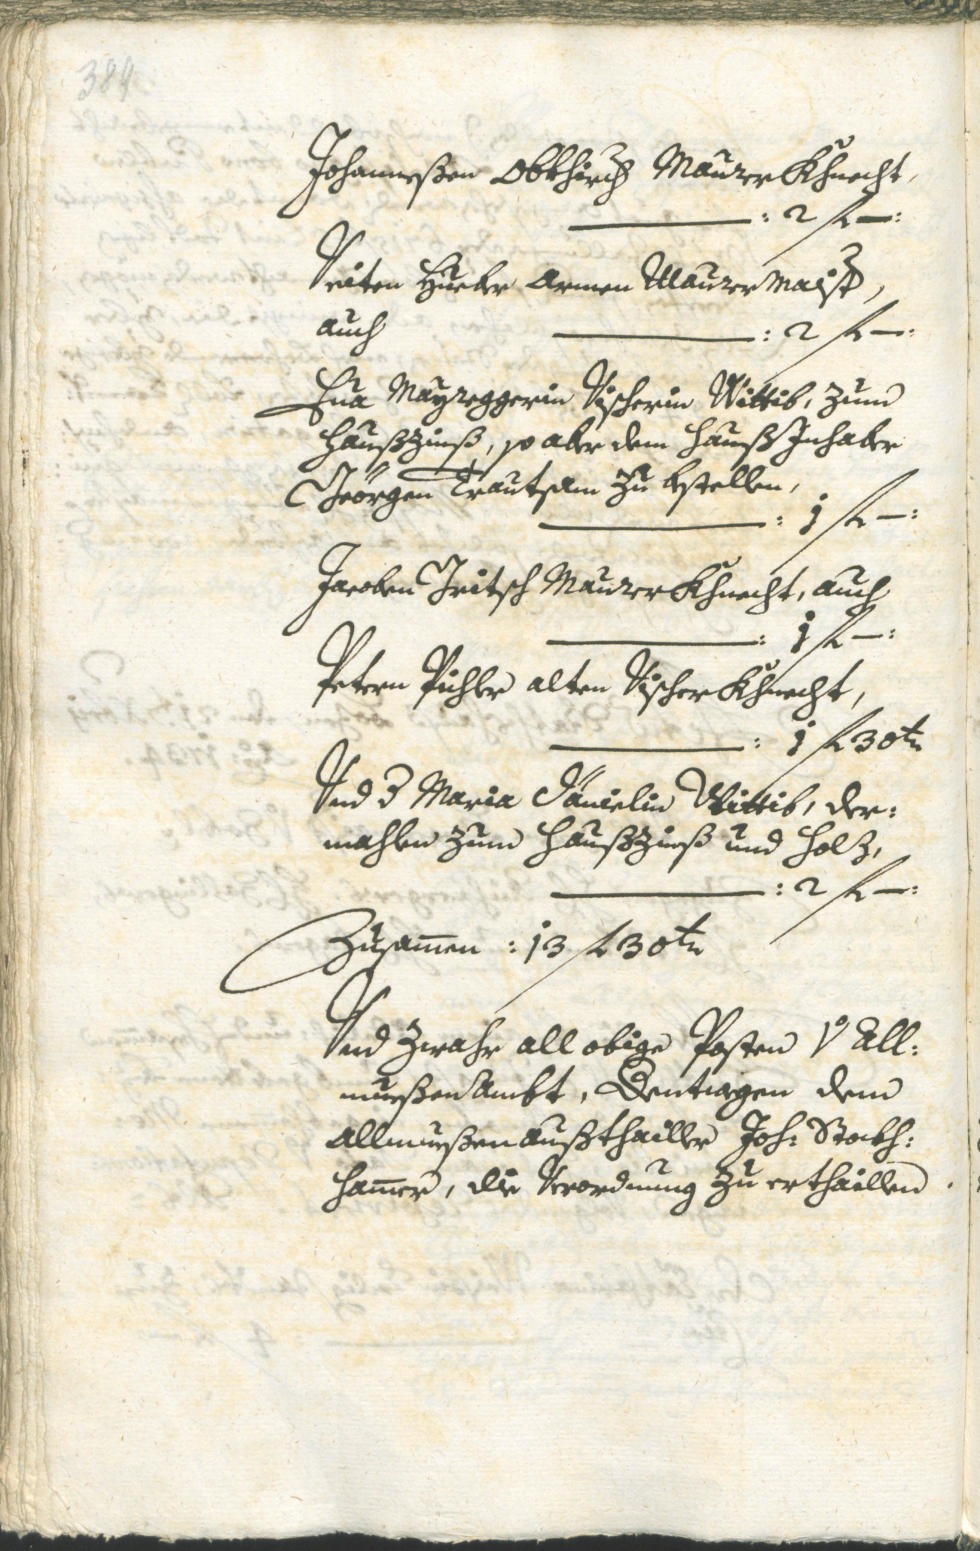 384
Johanneßen Obkhirch Maurer Khnecht,
: 2 f —:
Veiten Hueber Armen Maurer Maist,
auch : 2 f —:
Eua Mayreggerin Vischerin Wittib, zum
Haußzinß, so aber dem Hauß Inhaber
Geörgen Trautsam zu bstellen,
: 1 f —:
Jacoben Gritsch Maurer Khnecht, auch
: 1 f —:
Petern Pichler alten Vischer Khnecht,
: 1 f 30 kr
Vnd Maria Dänielin Wittib, der:
mahlen zum Haußzinß und Holz,
: 2 f —:
Zusam̄en : 13 f 30 kr
Vnd zwahr all obige Posten All:
mueßen Ambt, dem
Allmueßen außthailler Joh: Stockh:
ham̄er, die Verordnung zu erthaillen.